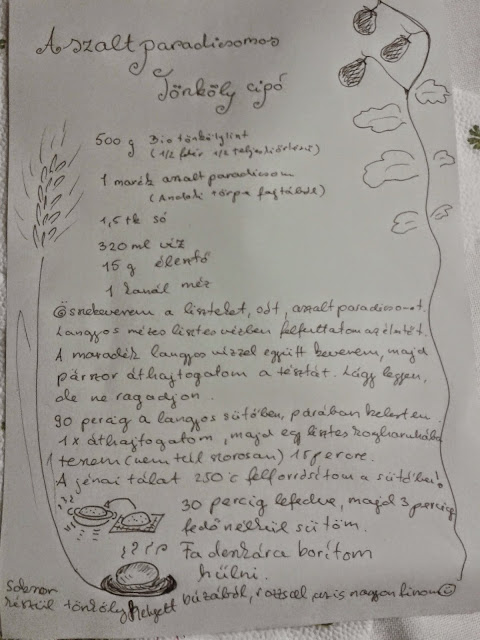 Aszalt paradicsomos
Tönköly cipó
500 g Bio tönkölyliszt
(1/2 fehér 1/2 teljeskiőrlésű)
1 marék aszalt paradicsom
(Andali törpe fajtából)
1,5 tk só
320 ml víz
15 g élesztő
1 kanál méz
Összekeverem a liszteket, sót, aszalt paradicsomot.
Langyos mézes lisztes vízben felfuttatom az élesztőt.
A maradék langyos vízzel együtt keverem, majd
párszor áthajtogatom a tésztát. Lágy legyen,
de ne ragadjon.
90 percig a langyos sütőben, párában kelesztem.
1x áthajtogatom, majd egy lisztes konyharuhába
teszem (nem túl szorosan) 15 percre.
A jénai tálat 250°C felforrósítom a sütőben!
30 percig lefedve, majd 3 percig
fedő nélkül sütöm.
Fa deszkára borítom
hűlni.
Sokszor
készül tönköly helyett búzából, rozssal, az is nagyon finom